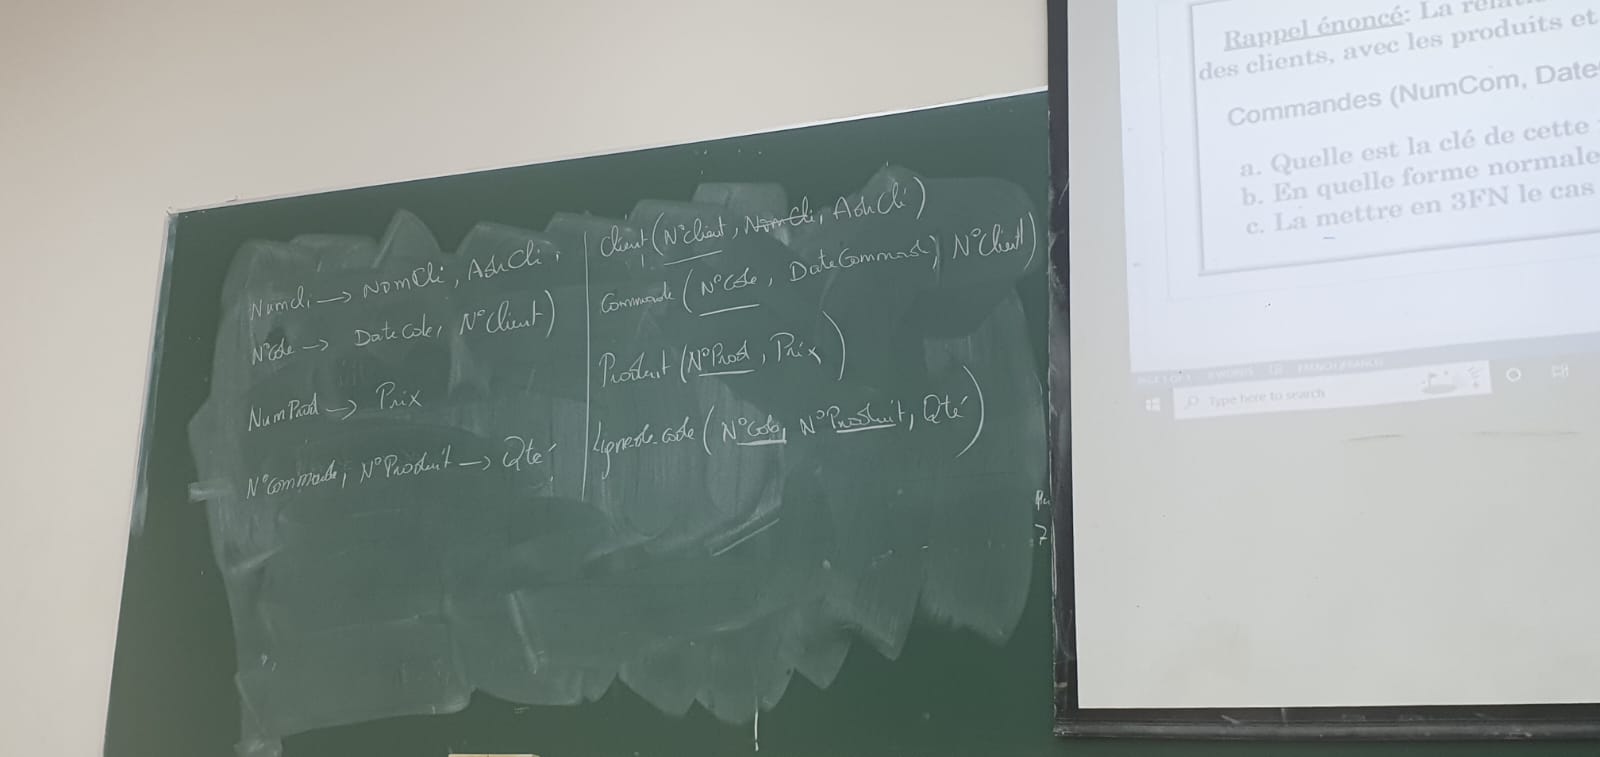 Numcli → NomCli, AdrCli.
N°Cde → DateCde, N°Client)
NumProd → Prix
N°Commande, N°Produit → Qté
Client (N°Client, NomCli, AdrCli)
Commande (N°Cde, DateCommande) N°Client)
Produit (N°Prod, Prix)
Ligne-de-cde (N°Cde, N°Produit, Qté)
Rappel énoncé: La
des clients, avec les produits et
Commandes (NumCom, Date
a. Quelle est la clé de cette
b. En quelle forme normale
c. La mettre en 3FN le cas
Type here to search